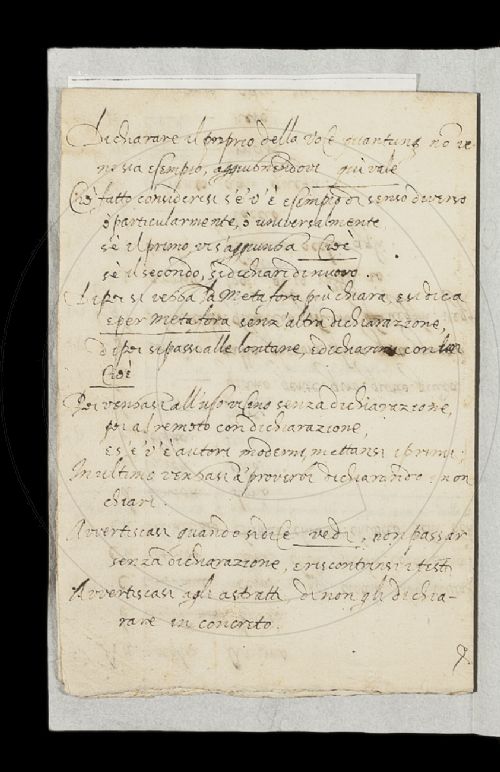 Dichiarare il proprio della Voce quantunq nō ve
ne sia esempio, aggiugnendovi qui vale
Ciò fatto consideresi se v'è esempio di senso diverso
ò particularmente, ò universalmente
s'è il primo, vi s'aggiunga Cioè
s'è il secondo, si dichiari di nuovo
Dipoi si vegga la Metafora più chiara, e si dica
e per metafora senz'altra dichiarazione,
dipoi si passi alle lontane, e dichiarinsi con
Cioè
Poi vengasi all'uso vicino senza dichiarazione,
poi al remoto con dichiarazione,
e s'e' v'è autori moderni, mettansi i primi;
In ultimo vengasi a' proverbi dichiarando i non
chiari.
Avvertiscasi quando si dice vedi, non passar
senza dichiarazione, e riscontrinsi i testi
Avvertiscasi agli astratti, di non gli dichia-
rare in concreto.